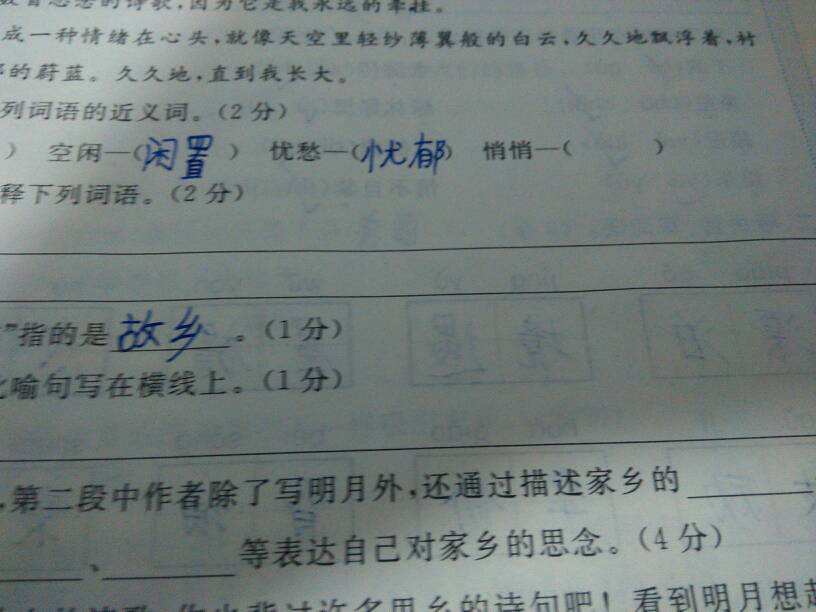 的诗歌,因为它是我永远的牵挂。
成一种情绪在心头,就像天空里轻纱薄翼般的白云,久久地飘浮着,衬
的蔚蓝。久久地,直到我长大。
列词语的近义词。(2分)
) 空闲—(闲置) 忧愁—(忧郁) 悄悄—( )
释下列词语。(2分)
”指的是故乡。(1分)
喻句写在横线上。(1分)
,第二段中作者除了写明月外,还通过描述家乡的
、 等表达自己对家乡的思念。(4分)
你也背过许多思乡的诗句吧!看到明月想